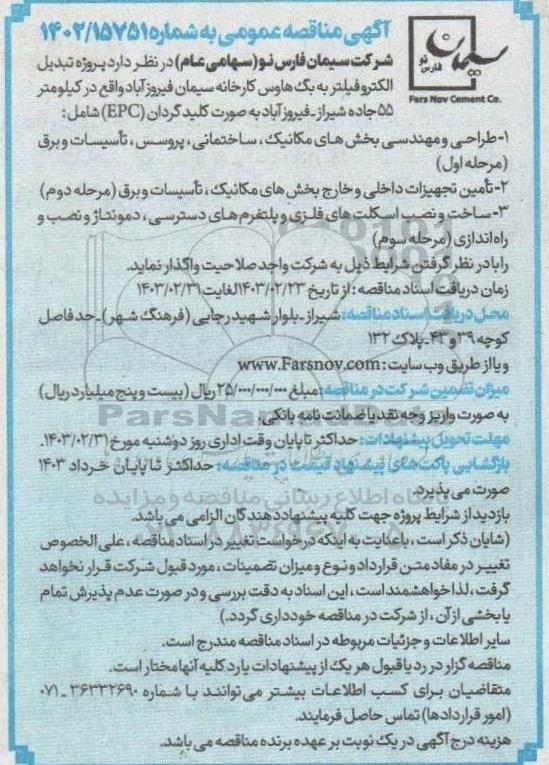 آگهی مناقصه عمومی به شماره ۱۴۰۲/۱۵۷۵۱
سیمان
فارس نو
Fars Nov Cement Co.
شرکت سیمان فارس نو (سهامی عام) در نظر دارد پروژه تبدیل
الکتروفیلتر به بگ هاوس کارخانه سیمان فیروزآباد واقع در کیلومتر
۵۵ جاده شیراز ـ فیروزآباد به صورت کلید گردان (EPC) شامل:
۱- طراحی و مهندسی بخش های مکانیک، ساختمانی، پروسس، تأسیسات و برق
(مرحله اول)
۲- تأمین تجهیزات داخلی و خارج بخش های مکانیک، تأسیسات و برق (مرحله دوم)
۳- ساخت و نصب اسکلت های فلزی و پلتفرم های دسترسی، دمونتاژ و نصب و
راه اندازی (مرحله سوم)
را با در نظر گرفتن شرایط ذیل به شرکت واجد صلاحیت واگذار نماید.
زمان دریافت اسناد مناقصه: از تاریخ ۱۴۰۳/۰۲/۲۳ لغایت ۱۴۰۳/۰۲/۳۱
محل دریافت اسناد مناقصه: شیراز ـ بلوار شهید رجایی (فرهنگ شهر) ـ حد فاصل
کوچه ۳۹ و ۴۳ ـ پلاک ۱۳۲
و یا از طریق وب سایت: www.Farsnov.com
میزان تضمین شرکت در مناقصه: مبلغ ۲۵/۰۰۰/۰۰۰/۰۰۰ ریال (بیست و پنج میلیارد ریال)
به صورت واریز وجه نقد یا ضمانت نامه بانکی.
مهلت تحویل پیشنهادات: حداکثر تا پایان وقت اداری روز دوشنبه مورخ ۱۴۰۳/۰۲/۳۱.
بازگشایی پاکت های پیشنهاد قیمت در مناقصه: حداکثر تا پایان خرداد ۱۴۰۳
صورت می پذیرد.
بازدید از شرایط پروژه جهت کلیه پیشنهاد دهندگان الزامی می باشد.
(شایان ذکر است، با عنایت به اینکه درخواست تغییر در اسناد مناقصه، علی الخصوص
تغییر در مفاد متن قرارداد و نوع و میزان تضمینات، مورد قبول شرکت قرار نخواهد
گرفت، لذا خواهشمند است، این اسناد به دقت بررسی و در صورت عدم پذیرش تمام
یا بخشی از آن، از شرکت در مناقصه خودداری گردد.)
سایر اطلاعات و جزئیات مربوطه در اسناد مناقصه مندرج است.
مناقصه گزار در رد یا قبول هر یک از پیشنهادات یا رد کلیه آنها مختار است.
متقاضیان برای کسب اطلاعات بیشتر می توانند با شماره ۳۶۳۳۲۶۹۰ ـ ۰۷۱
(امور قراردادها) تماس حاصل فرمایند.
هزینه درج آگهی در یک نوبت بر عهده برنده مناقصه می باشد.
ParsNamadData
پایگاه اطلاع رسانی مناقصه و مزایده